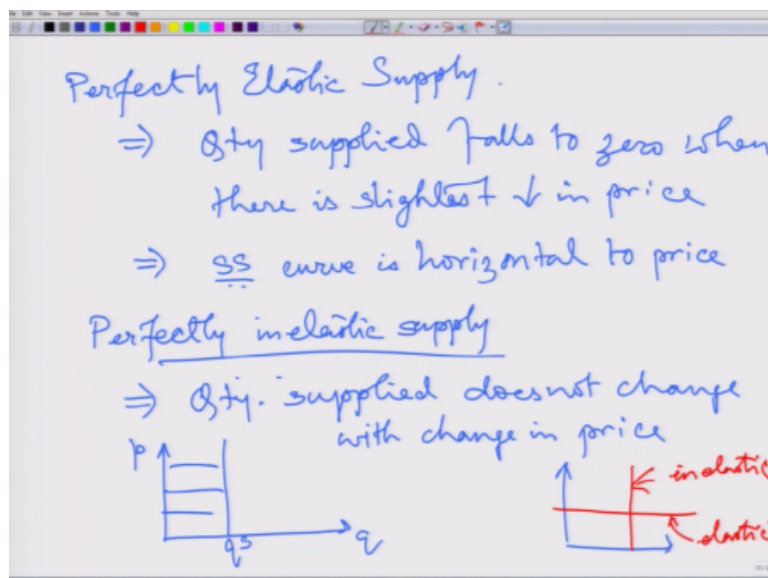 Perfectly Elastic Supply.
⇒ Qty supplied falls to zero when
there is slightest ↓ in price
⇒ SS curve is horizontal to price
Perfectly inelastic supply
⇒ Qty. supplied doesnot change
with change in price
p
qs
q
inelastic
elastic